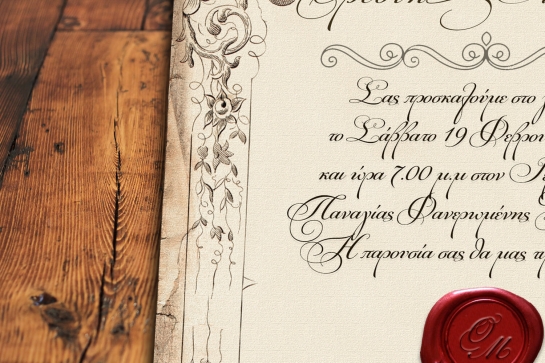 Σας προσκαλούμε στο
το Σάββατο 19 Φεβρου
και ώρα 7.00 μ.μ στον
Παναγίας Φανερωμένης
Η παρουσία σας θα μας